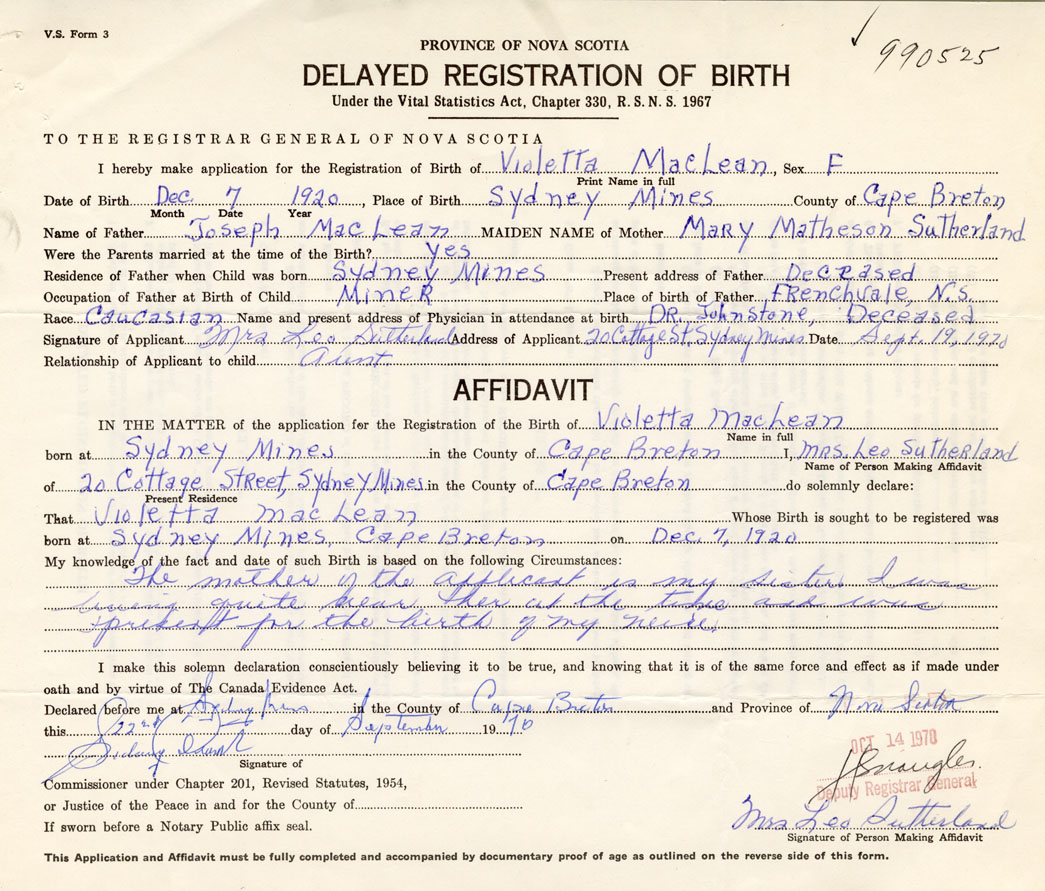 V.S. Form 3
990525
PROVINCE OF NOVA SCOTIA
DELAYED REGISTRATION OF BIRTH
Under the Vital Statistics Act, Chapter 330, R.S.N.S. 1967
TO THE REGISTRAR GENERAL OF NOVA SCOTIA
I hereby make application for the Registration of Birth of Violetta MacLean, Sex F
Print Name in full
Date of Birth Dec. 7 1920, Place of Birth Sydney Mines County of Cape Breton
Month Date Year
Name of Father Joseph MacLean MAIDEN NAME of Mother Mary Matheson Sutherland
Were the Parents married at the time of the Birth? yes
Residence of Father when Child was born Sydney Mines Present address of Father Deceased
Occupation of Father at Birth of Child Miner Place of birth of Father Frenchvale, N.S.
Race Caucasian Name and present address of Physician in attendance at birth DR. Johnstone, Deceased
Signature of Applicant Mrs Leo Sutherland Address of Applicant 20 Cottage St, Sydney Mines Date Sept. 19, 1970
Relationship of Applicant to child Aunt
AFFIDAVIT
IN THE MATTER of the application for the Registration of the Birth of Violetta MacLean
Name in full
born at Sydney Mines in the County of Cape Breton I, Mrs. Leo Sutherland
Name of Person Making Affidavit
of 20 Cottage Street, Sydney Mines in the County of Cape Breton do solemnly declare:
Present Residence
That Violetta MacLean Whose Birth is sought to be registered was
born at Sydney Mines, Cape Breton on Dec. 7, 1920
My knowledge of the fact and date of such Birth is based on the following Circumstances:
The mother of the applicant is my sister. I was
living quite near her at the time and was
present for the birth of my neice.
I make this solemn declaration conscientiously believing it to be true, and knowing that it is of the same force and effect as if made under
oath and by virtue of The Canada Evidence Act.
Declared before me at Sydney Mines in the County of Cape Breton and Province of Nova Scotia
this 22nd day of September 1970
OCT 14 1970
Signature of
Deputy Registrar General
Commissioner under Chapter 201, Revised Statutes, 1954,
or Justice of the Peace in and for the County of
Mrs Leo Sutherland
If sworn before a Notary Public affix seal.
Signature of Person Making Affidavit
This Application and Affidavit must be fully completed and accompanied by documentary proof of age as outlined on the reverse side of this form.